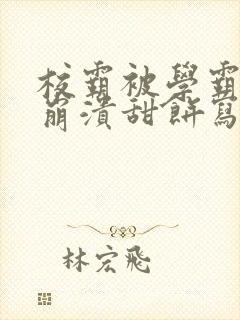 校霸被學霸
崩潰甜餅寫
林宏飛